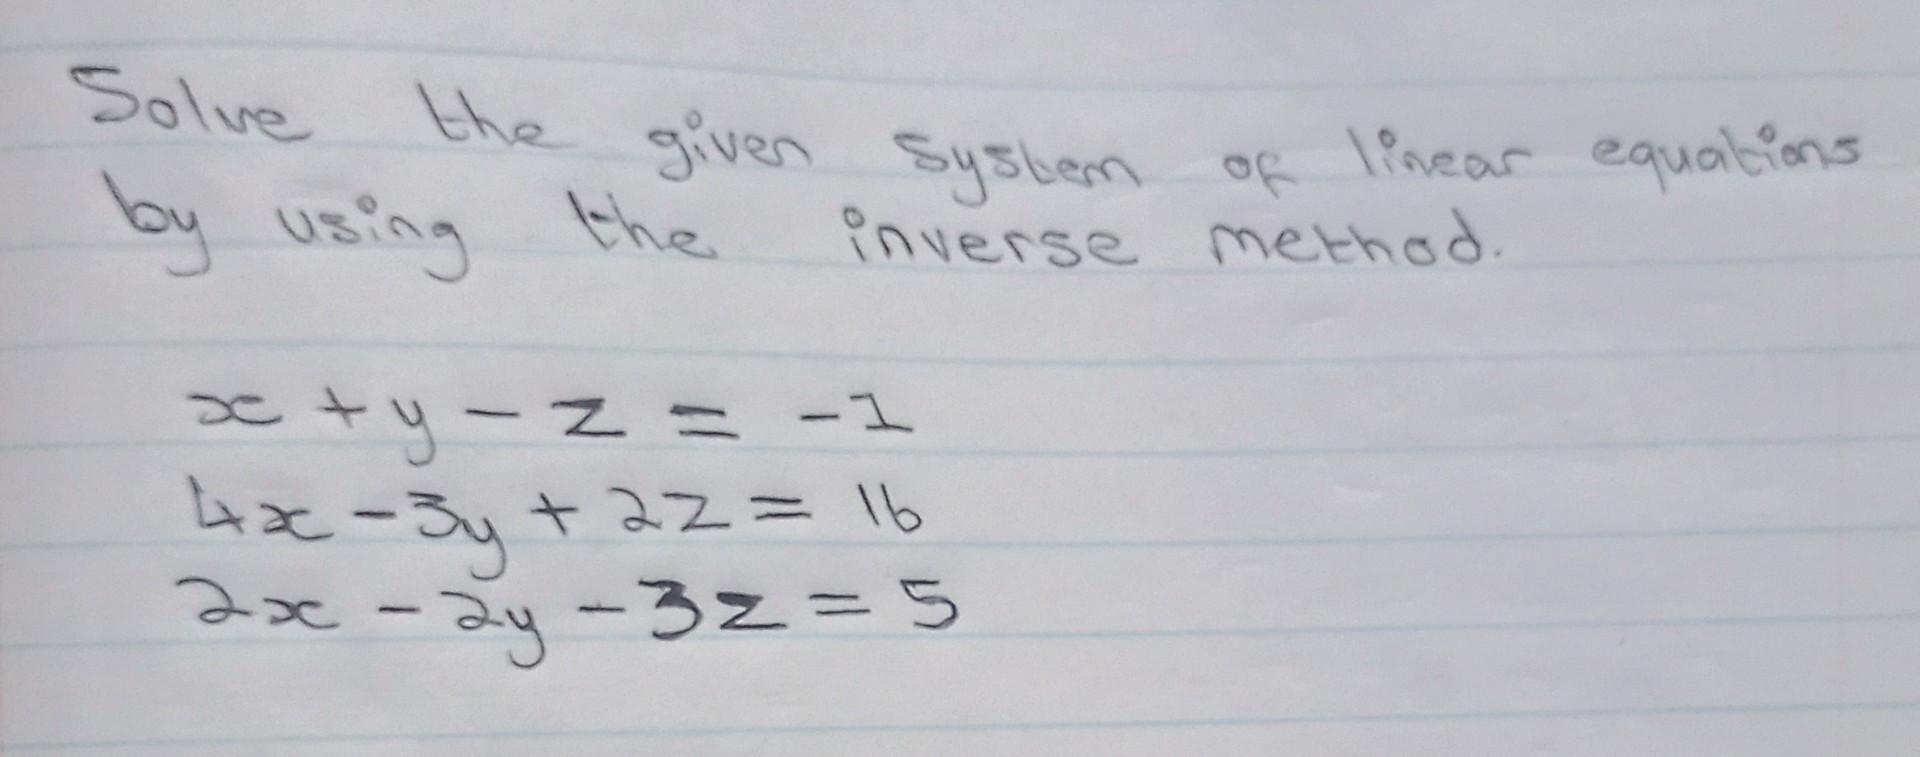 Solve the given system of linear equations
by using the inverse method.
x + y - z = -1
4x - 3y + 2z = 16
2x - 2y - 3z = 5